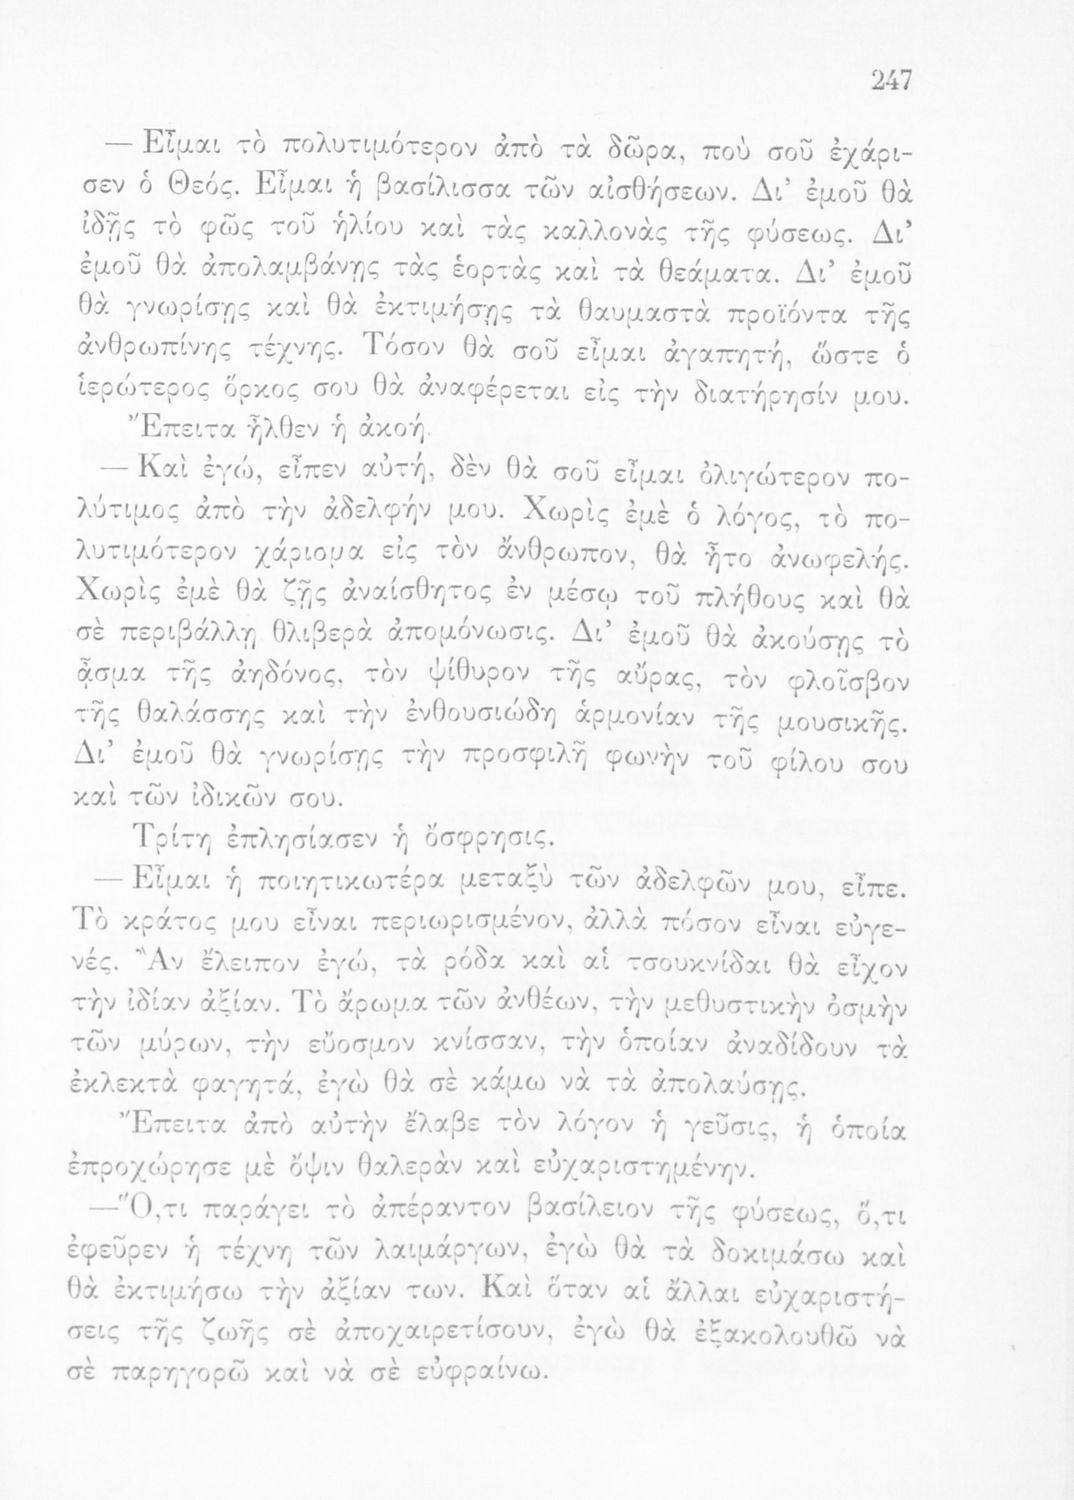 247
— Εἶμαι τὸ πολυτιμότερον ἀπὸ τὰ δῶρα, ποὺ σοῦ ἐχάρι-
σεν ὁ Θεός. Εἶμαι ἡ βασίλισσα τῶν αἰσθήσεων. Δι’ ἐμοῦ θὰ
ἰδῇς τὸ φῶς τοῦ ἡλίου καὶ τὰς καλλονὰς τῆς φύσεως. Δι’
ἐμοῦ θὰ ἀπολαμβάνῃς τὰς ἑορτὰς καὶ τὰ θεάματα. Δι’ ἐμοῦ
θὰ γνωρίσῃς καὶ θὰ ἐκτιμήσῃς τὰ θαυμαστὰ προϊόντα τῆς
ἀνθρωπίνης τέχνης. Τόσον θὰ σοῦ εἶμαι ἀγαπητή, ὥστε ὁ
ἱερώτερος ὅρκος σου θὰ ἀναφέρεται εἰς τὴν διατήρησίν μου.
Ἔπειτα ἦλθεν ἡ ἀκοή.
— Καὶ ἐγώ, εἶπεν αὐτή, δὲν θὰ σοῦ εἶμαι ὀλιγώτερον πο-
λύτιμος ἀπὸ τὴν ἀδελφήν μου. Χωρὶς ἐμὲ ὁ λόγος, τὸ πο-
λυτιμότερον χάρισμα εἰς τὸν ἄνθρωπον, θὰ ἦτο ἀνωφελής.
Χωρὶς ἐμὲ θὰ ζῇς ἀναίσθητος ἐν μέσῳ τοῦ πλήθους καὶ θὰ
σὲ περιβάλλῃ θλιβερὰ ἀπομόνωσις. Δι’ ἐμοῦ θὰ ἀκούσῃς τὸ
ᾆσμα τῆς ἀηδόνος, τὸν ψίθυρον τῆς αὔρας, τὸν φλοῖσβον
τῆς θαλάσσης καὶ τὴν ἐνθουσιώδη ἁρμονίαν τῆς μουσικῆς.
Δι’ ἐμοῦ θὰ γνωρίσῃς τὴν προσφιλῆ φωνὴν τοῦ φίλου σου
καὶ τῶν ἰδικῶν σου.
Τρίτη ἐπλησίασεν ἡ ὄσφρησις.
— Εἶμαι ἡ ποιητικωτέρα μεταξὺ τῶν ἀδελφῶν μου, εἶπε.
Τὸ κράτος μου εἶναι περιωρισμένον, ἀλλὰ πόσον εἶναι εὐγε-
νές. Ἂν ἔλειπον ἐγώ, τὰ ρόδα καὶ αἱ τσουκνίδαι θὰ εἶχον
τὴν ἰδίαν ἀξίαν. Τὸ ἄρωμα τῶν ἀνθέων, τὴν μεθυστικὴν ὀσμὴν
τῶν μύρων, τὴν εὔοσμον κνίσσαν, τὴν ὁποίαν ἀναδίδουν τὰ
ἐκλεκτὰ φαγητά, ἐγὼ θὰ σὲ κάμω νὰ τὰ ἀπολαύσῃς.
Ἔπειτα ἀπὸ αὐτὴν ἔλαβε τὸν λόγον ἡ γεῦσις, ἡ ὁποία
ἐπροχώρησε μὲ ὄψιν θαλερὰν καὶ εὐχαριστημένην.
—Ὅ,τι παράγει τὸ ἀπέραντον βασίλειον τῆς φύσεως, ὅ,τι
ἐφεῦρεν ἡ τέχνη τῶν λαιμάργων, ἐγὼ θὰ τὰ δοκιμάσω καὶ
θὰ ἐκτιμήσω τὴν ἀξίαν των. Καὶ ὅταν αἱ ἄλλαι εὐχαριστή-
σεις τῆς ζωῆς σὲ ἀποχαιρετίσουν, ἐγὼ θὰ ἐξακολουθῶ νὰ
σὲ παρηγορῶ καὶ νὰ σὲ εὐφραίνω.